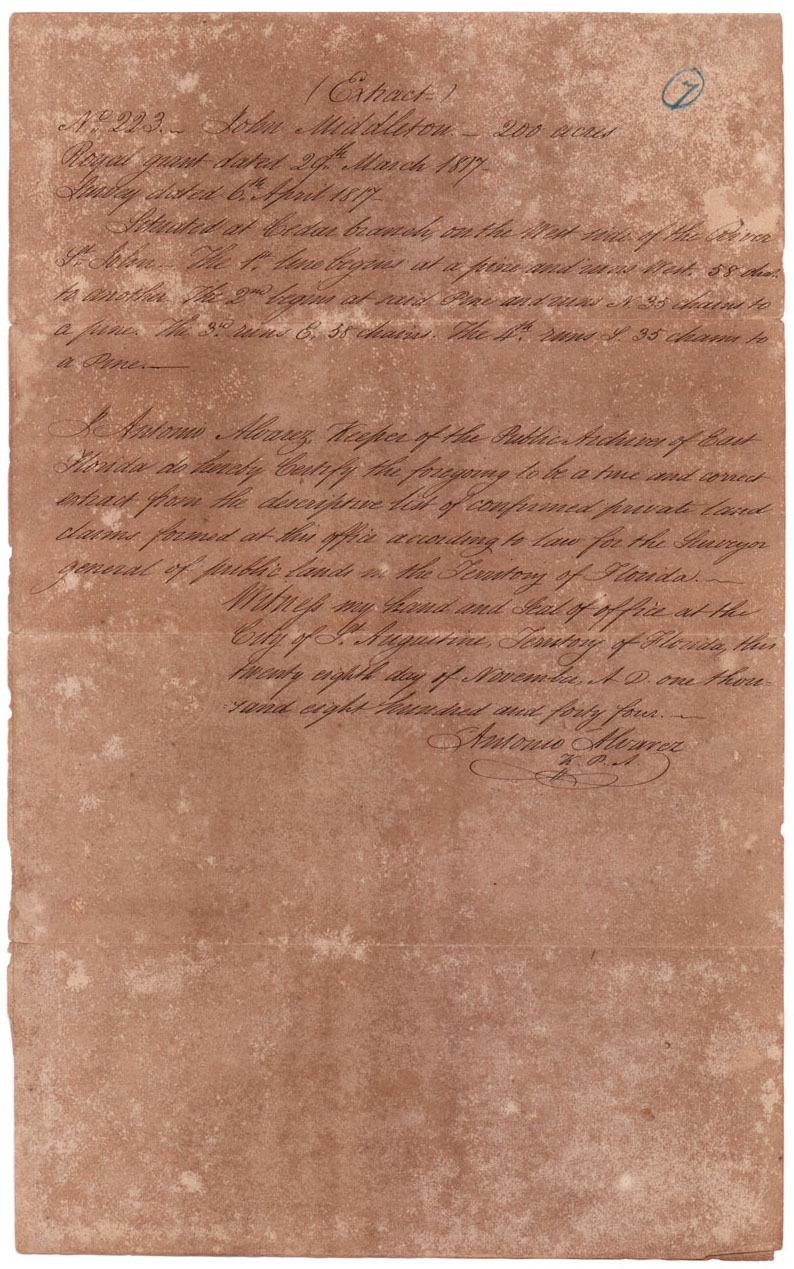 (Extract)
7
No. 223. John Middleton. 200 acres
Royal grant dated 29th March 1817
Survey dated 6th April 1817
Situated at Cedar branch, on the West side of the River
St John. The 1st line begins at a pine and runs West. 58 chs.
to another. The 2nd begins at said Pine and runs N. 35 chains to
a pine. The 3d runs E. 58 chains. The 4th runs S. 35 chains to
a Pine.
I Antonio Alvarez, Keeper of the Public Archives of East
Florida do hereby Certify the foregoing to be a true and correct
extract from the descriptive list of confirmed private land
claims formed at this office according to law for the Surveyor
general of public lands in the Territory of Florida.
Witness my hand and Seal of office at the
City of St Augustine, Territory of Florida, this
twenty eighth day of November A. D. one thou-
-sand eight hundred and forty four.
Antonio Alvarez
K. P. A.